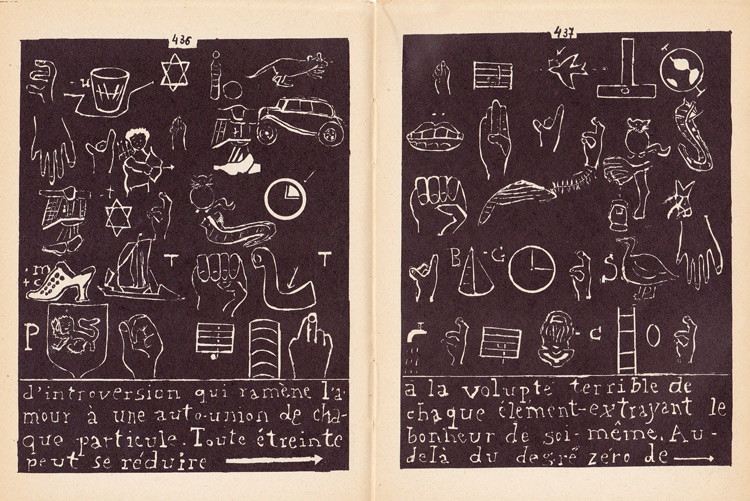 436
u
+
T
T
m
+s
P
d'introversion qui ramène l'a-
mour à une auto-union de cha-
que particule. Toute étreinte
peut se réduire
437
B - G
S
- C
O
à la volupté terrible de
chaque élément-extrayant le
bonheur de soi-même. Au-
delà du degré zéro de